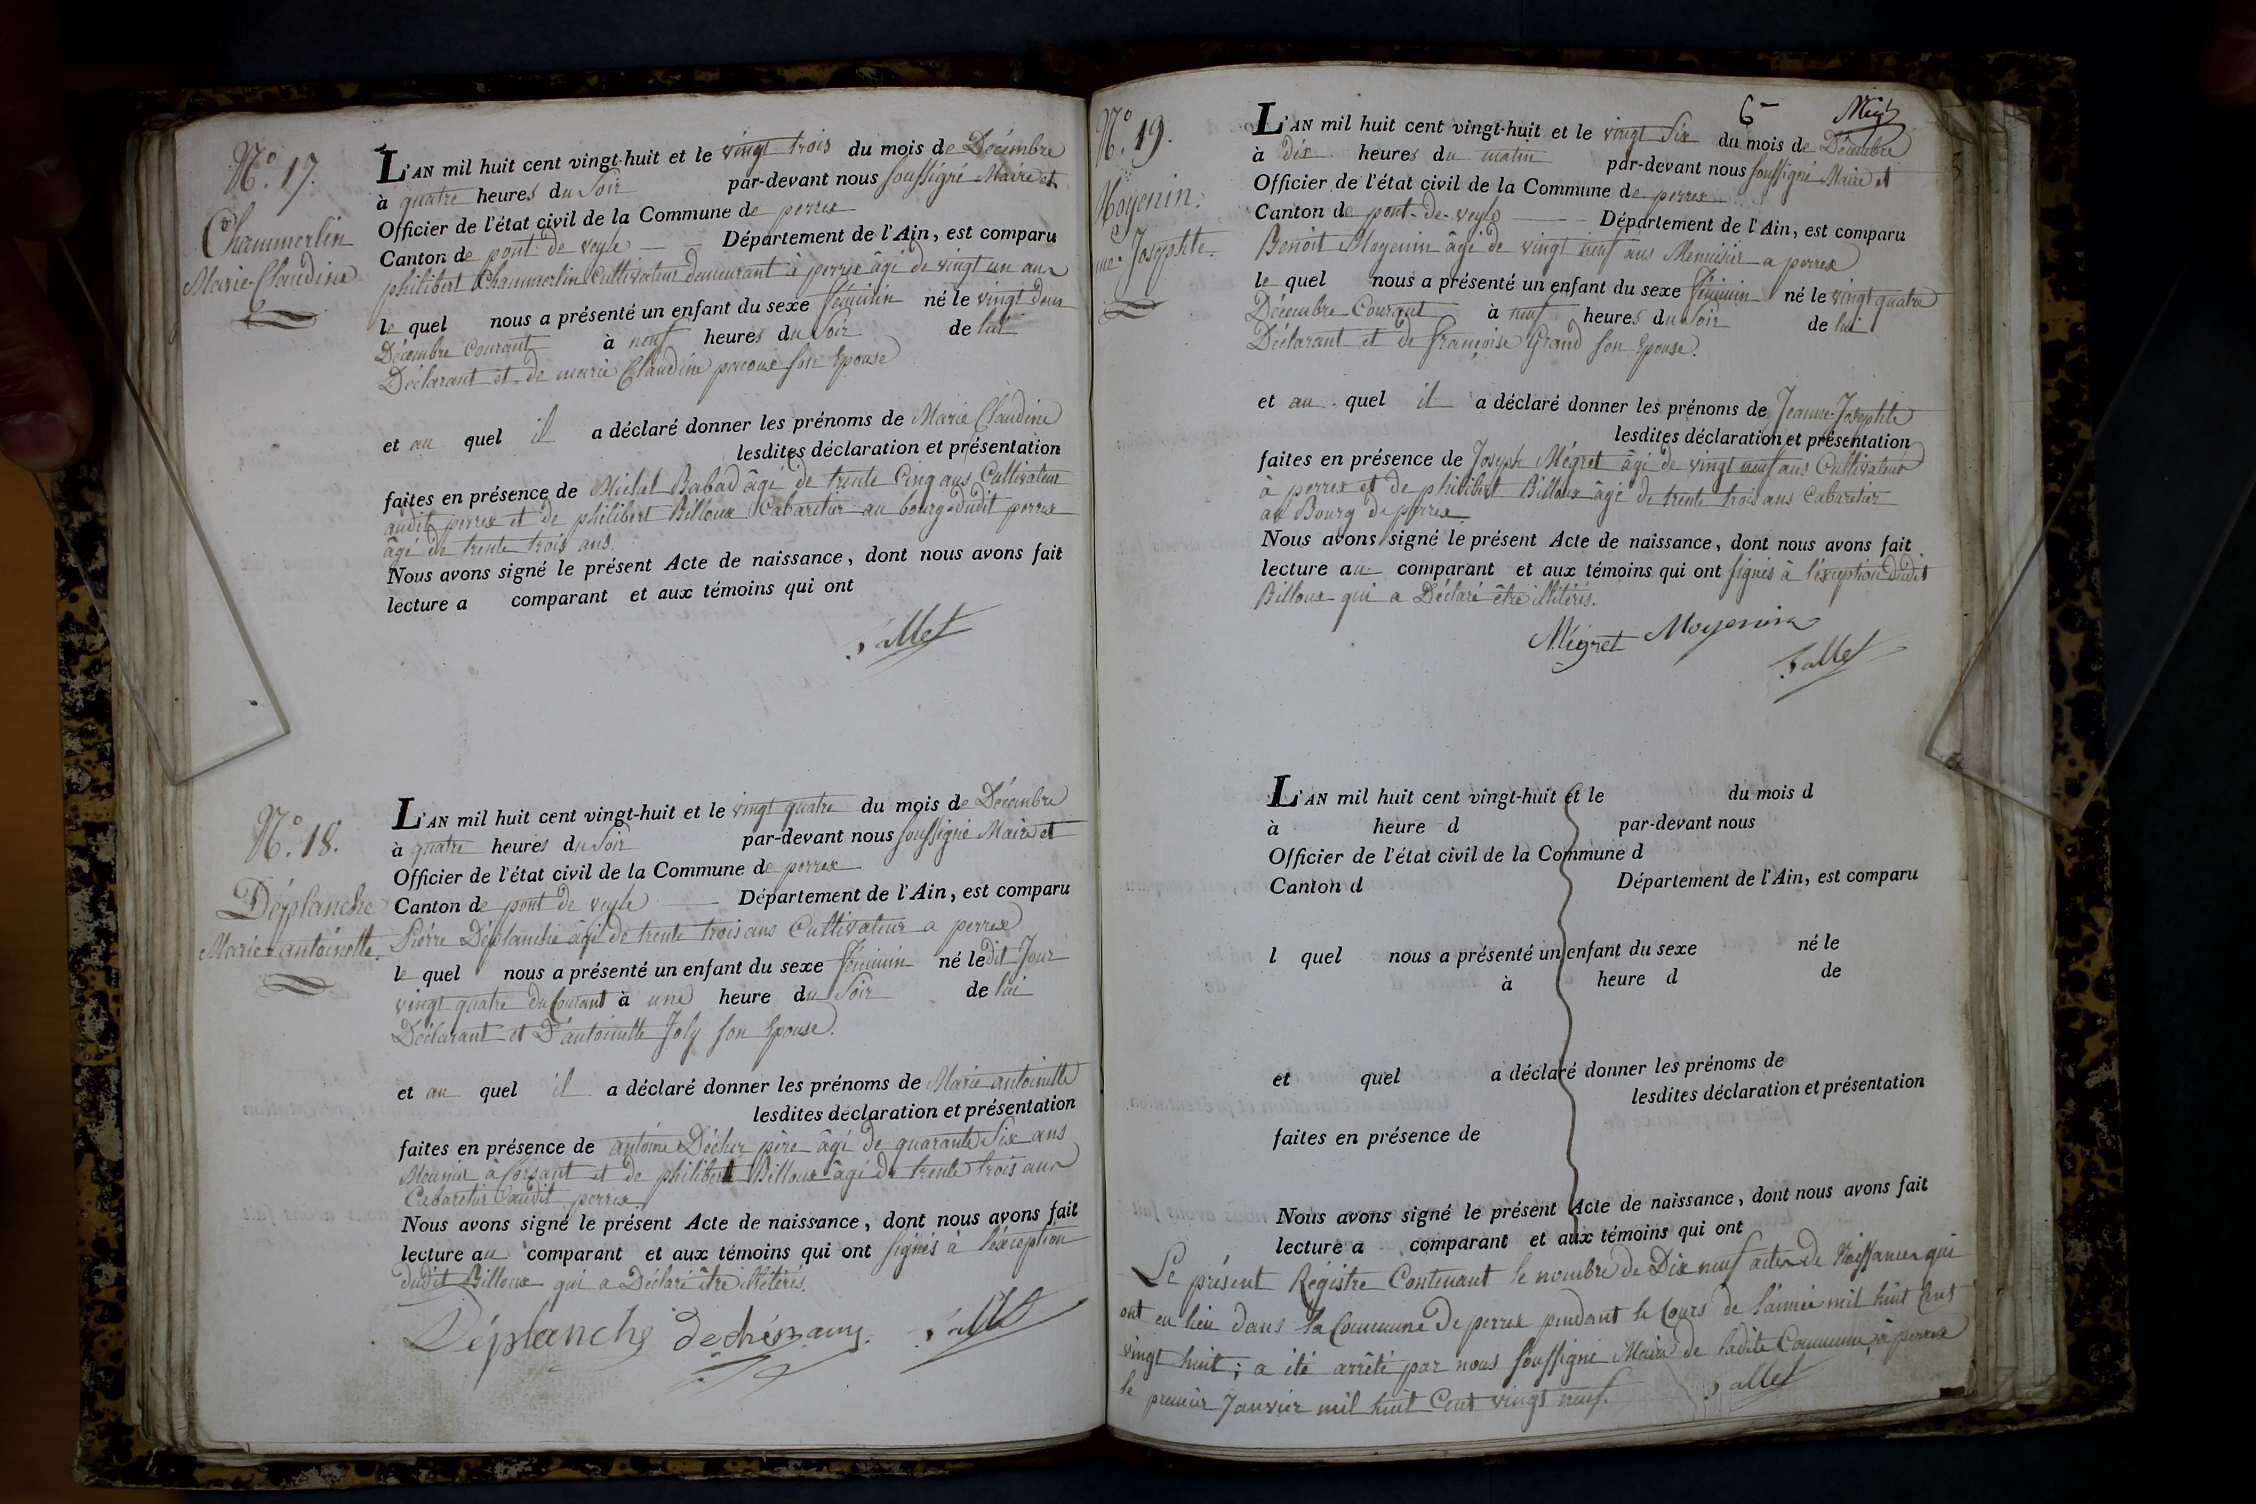 N.° 17.
Chammerlin
Marie Claudine
L'AN mil huit cent vingt-huit et le vingt trois du mois de Décembre
à quatre heures du Soir par-devant nous soussigné Maire et
Officier de l'état civil de la Commune de perrex
Canton de pont de veyle Département de l'Ain, est comparu
philibert Chammerlin Cultivateur demeurant à perrex âgé de vingt un ans
le quel nous a présenté un enfant du sexe féminin né le vingt deux
Décembre Courant à neuf heures du Soir de lui
Déclarant et de marie Claudine son Epouse
et au quel il a déclaré donner les prénoms de Marie Claudine
lesdites déclaration et présentation
faites en présence de Michel Babad âgé de trente Cinq ans Cultivateur
audit perrex et de philibert Billoux Cabaretier au bourg dudit perrex
âgé de trente trois ans.
Nous avons signé le présent Acte de naissance, dont nous avons fait
lecture a comparant et aux témoins qui ont
N.° 18.
Déplanche
Marie antoinette.
L'AN mil huit cent vingt-huit et le vingt quatre du mois de Décembre
à quatre heures du Soir par-devant nous soussigné Maire et
Officier de l'état civil de la Commune de perrex
Canton de pont de veyle Département de l'Ain, est comparu
Pierre Déplanche âgé de trente trois ans Cultivateur a perrex
le quel nous a présenté un enfant du sexe féminin né le dit Jour
vingt quatre du Courant à une heure du Soir de lui
Déclarant et D'antoinette Joly son Epouse.
et au quel il a déclaré donner les prénoms de Marie antoinette
lesdites déclaration et présentation
faites en présence de antoine père âgé de quarante Six ans
Meunier à et de philibert Billoux âgé de trente trois ans
Cabaretier audit perrex
Nous avons signé le présent Acte de naissance, dont nous avons fait
lecture au comparant et aux témoins qui ont signés à l'éxception
dudit Billoux qui a Déclaré être illitérés.
Déplanche
N.° 19.
Moyenin.
Josephte.
6
L'AN mil huit cent vingt-huit et le vingt Six du mois de Décembre
à dix heures du matin par-devant nous soussigné Maire et
Officier de l'état civil de la Commune de perrex
Canton de pont-de-veyle Département de l'Ain, est comparu
Benoit Moyenin âgé de vingt neuf ans Menuisier a perrex
le quel nous a présenté un enfant du sexe féminin né le vingt quatre
Décembre Courant à neuf heures du Soir de lui
Déclarant et de françoise Grand son Epouse.
et au quel il a déclaré donner les prénoms de Jeanne-Josephte
lesdites déclaration et présentation
faites en présence de Joseph Mégret âgé de vingt neuf ans Cultivateur
à perrex et de philibert Billoux âgé de trente trois ans Cabaretier
au Bourg de perrex
Nous avons signé le présent Acte de naissance, dont nous avons fait
lecture au comparant et aux témoins qui ont signés à l'éxception dudit
Billoux qui a Déclaré être illitérés.
Mégret Moyenin
L'AN mil huit cent vingt-huit et le du mois d
à heure d par-devant nous
Officier de l'état civil de la Commune d
Canton d Département de l'Ain, est comparu
l quel nous a présenté un enfant du sexe né le
à heure d de
et quel a déclaré donner les prénoms de
lesdites déclaration et présentation
faites en présence de
Nous avons signé le présent Acte de naissance, dont nous avons fait
lecture a comparant et aux témoins qui ont
Le présent Régistre Contenant le nombre de Dix neuf actes de Naissances qui
ont eu lieu dans la Commune de perrex pendant le Cours de l'année mil huit Cent
vingt huit; a été arrêté par nous soussigné Maire de ladite Commune, à perrex
le premier Janvier mil huit Cent vingt neuf.